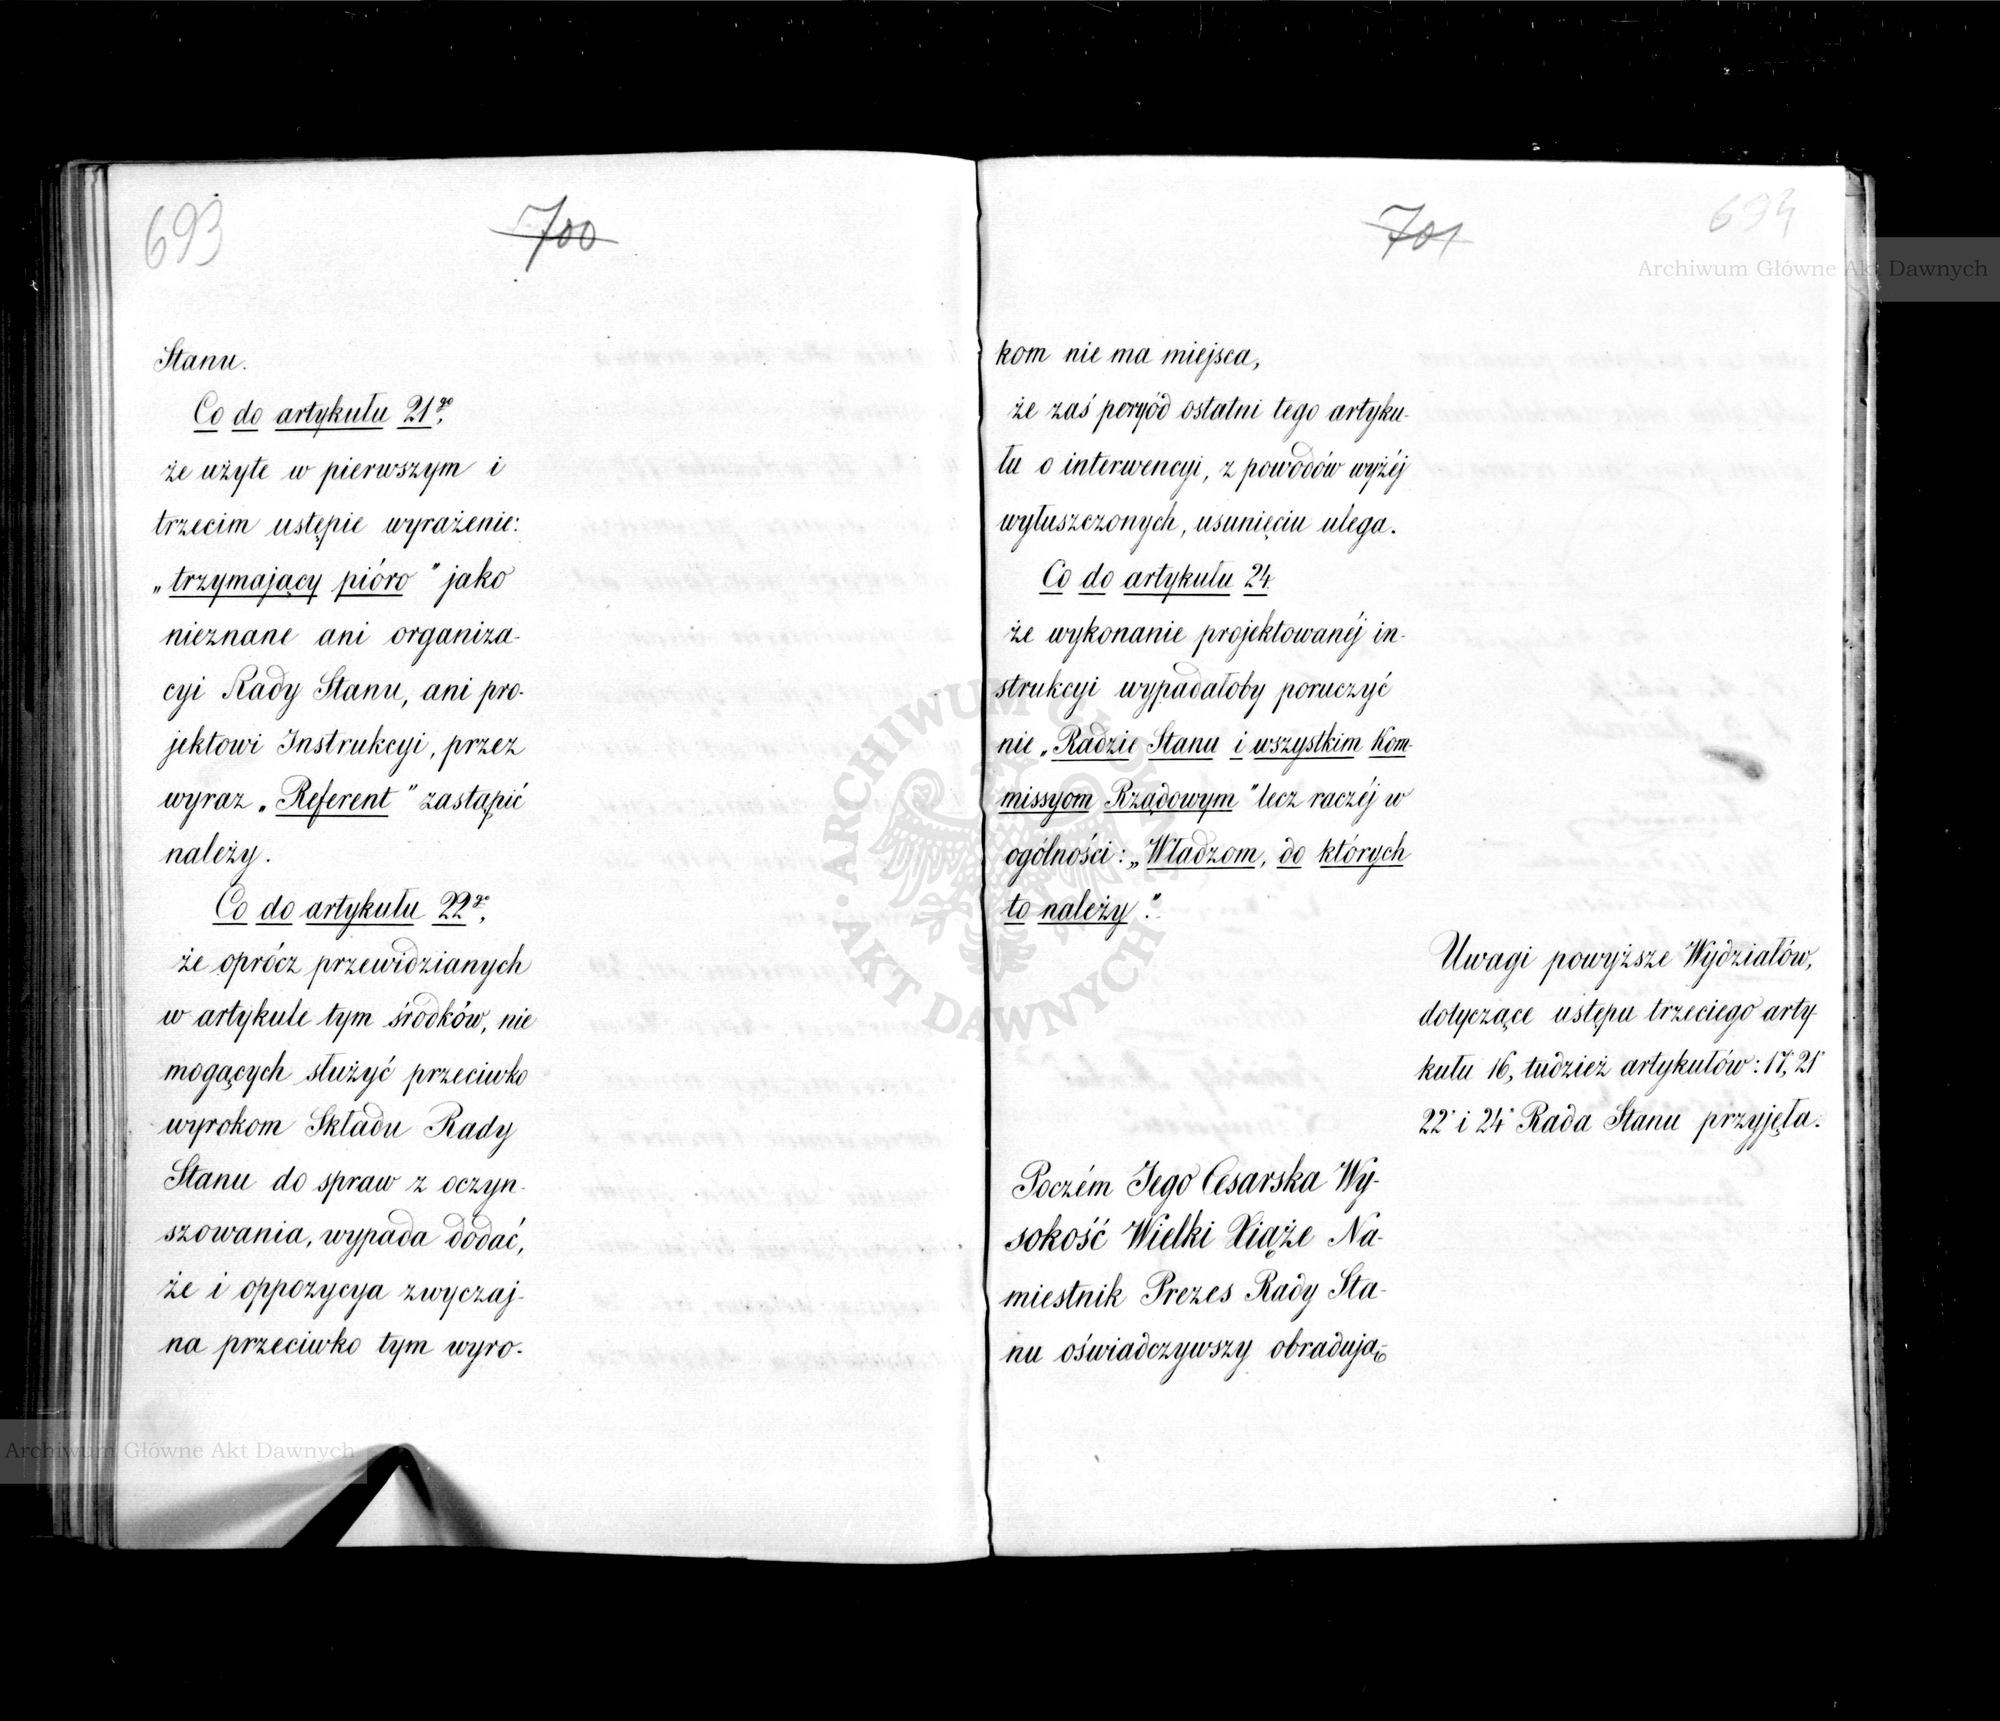 693
700
Stanu.
Co do artykułu 21go,
że użyte w pierwszym i
trzecim ustępie wyrażenie:
„trzymający pióro” jako
nieznane ani organiza-
cyi Rady Stanu, ani pro-
jektowi Instrukcyi, przez
wyraz „Referent” zastąpić
należy.
Co do artykułu 22go,
że oprócz przewidzianych
w artykule tym środków, nie
mogących służyć przeciwko
wyrokom Składu Rady
Stanu do spraw z oczyn-
szowania, wypada dodać,
że i oppozycya zwyczaj-
na przeciwko tym wyro-
701
694
kom nie ma miejsca,
że zaś peryód ostatni tego artyku-
łu o interwencyi, z powodów wyżéj
wyłuszczonych, usunięciu ulega.
Co do artykułu 24.
że wykonanie projektowanéj in-
strukcyi wypadałoby poruczyć
nie „Radzie Stanu i wszystkim Kom-
missyom Rządowym” lecz raczéj w
ogólności: „Władzom, do których
to należy”.
Uwagi powyższe Wydziałów,
dotyczące ustępu trzeciego arty-
kułu 16, tudzież artykułów: 17, 21
22 i 24 Rada Stanu przyjęła.
Poczém Jego Cesarska Wy-
sokość Wielki Xiąże Na-
miestnik Prezes Rady Sta-
nu oświadczywszy obradują-
Archiwum Główne Akt Dawnych
ARCHIWUM GŁÓWNE
AKT DAWNYCH
Archiwum Główne Akt Dawnych